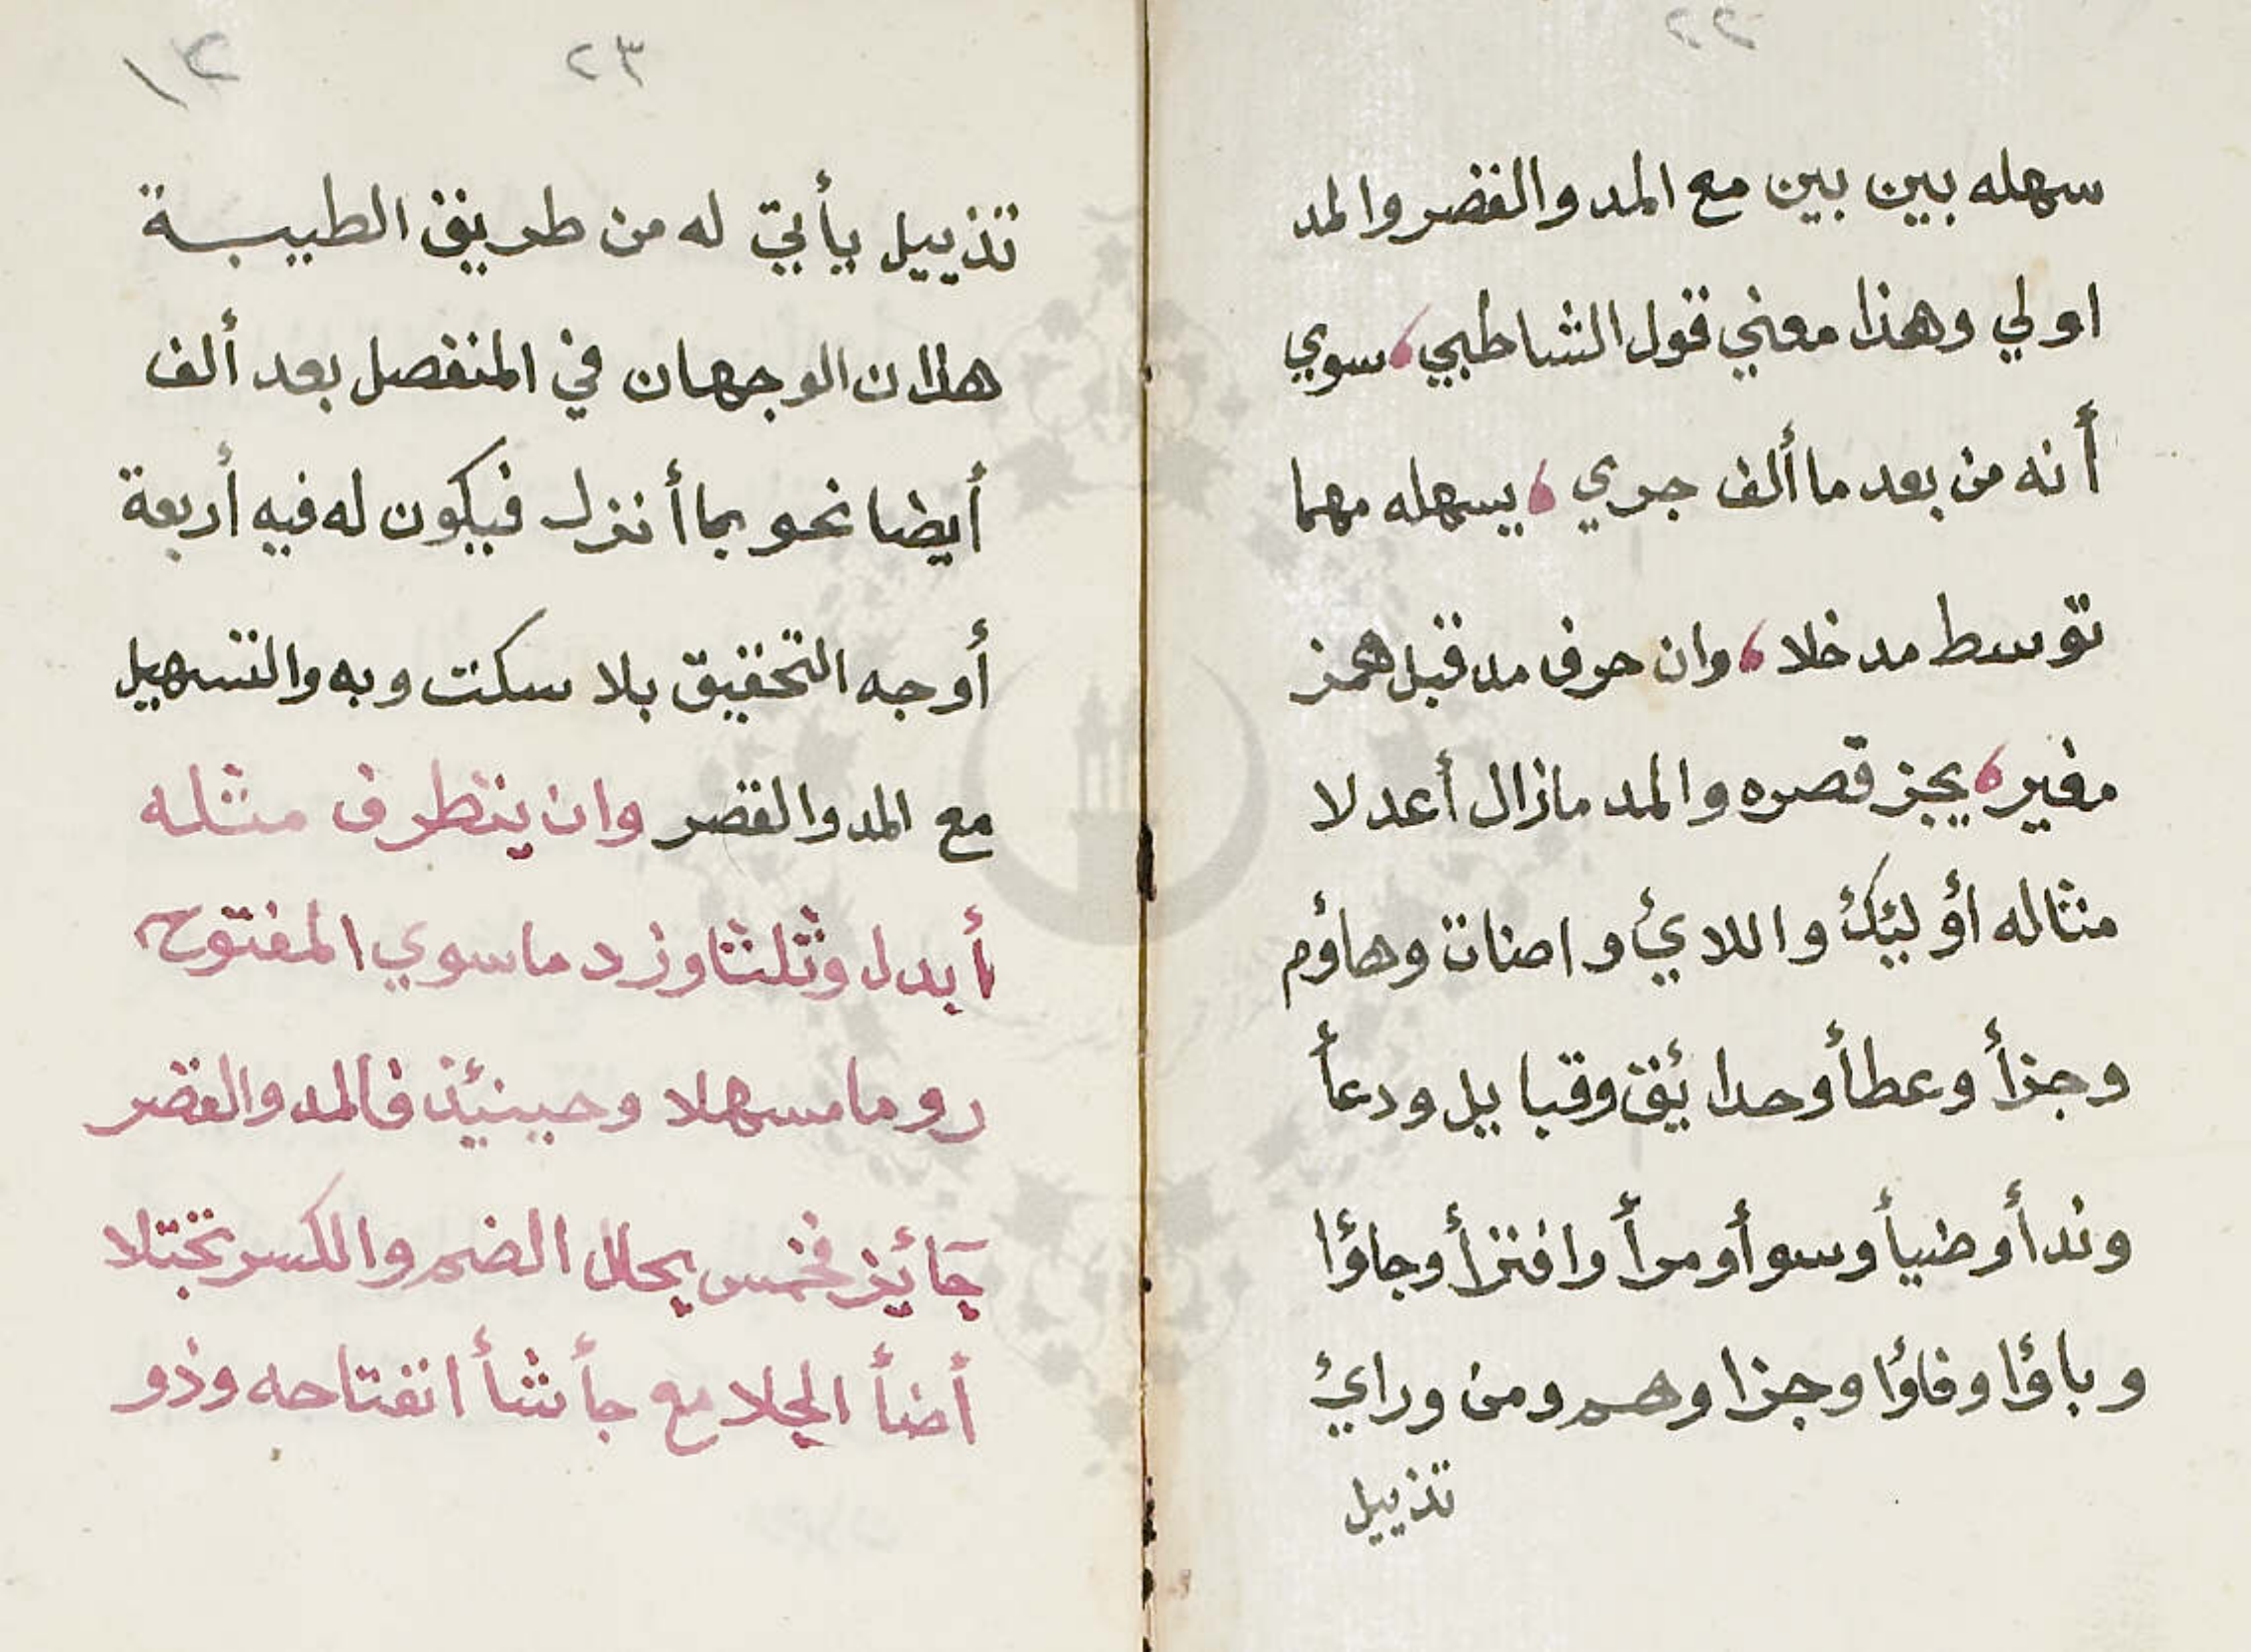 ٢٢
سهله بين بين مع المد والقصر والمد
اولي وهذا معني قول الشاطبي، سوي
أنه من بعد ما ألف جري، يسهله مهما
توسط مدخلا، وان حرف مد قبل همز
مغير، يجز قصره والمد مازال أعدلا
مثاله أوليئك واللائي واضات وهاؤم
وجزأ وعطأ وحدائق وقبايل ودعأ
وندأ وضيأ وسوأ ومرأ وافتزأ وجاؤا
وباؤا وفاؤا وجزاوهم ومن ورائ
تذييل
٢٣
٢
تذييل يأتي له من طريق الطيبة
هذان الوجهان في المنفصل بعد ألف
أيضا نحو بما أنزل فيكون له فيه أربعة
أوجه التحقيق بلا سكت وبه والتسهيل
مع المد والقصر وان يتطرف مثله
أبدل وثلثا وزد ما سوي المفتوح
روما مسهلا وحينئذ فالمد والقصر
جائز فخمس يحلل الضم والكسر تجتلا
أضأ الجلا مع جأ شأ انفتاحه وذو